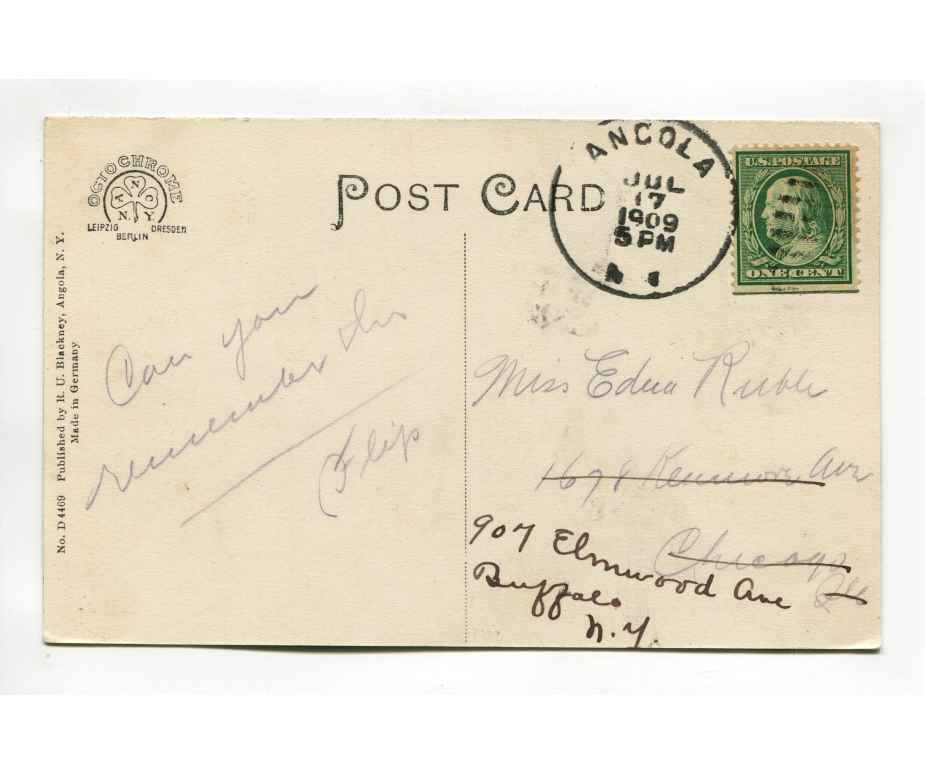 OCTOCHROME
A N C
N. Y.
LEIPZIG DRESDEN
BERLIN
No. D 4469 Published by R. U. Blackney, Angola, N. Y.
Made in Germany
POST CARD
ANGOLA
JUL
17
1909
5 PM
N
U.S. POSTAGE
ONE CENT
Can you
remember this
Flip
Miss Edna Ruble
1678 Kenmore Ave
Chicago
Ill
907 Elmwood Ave
Buffalo
N.Y.